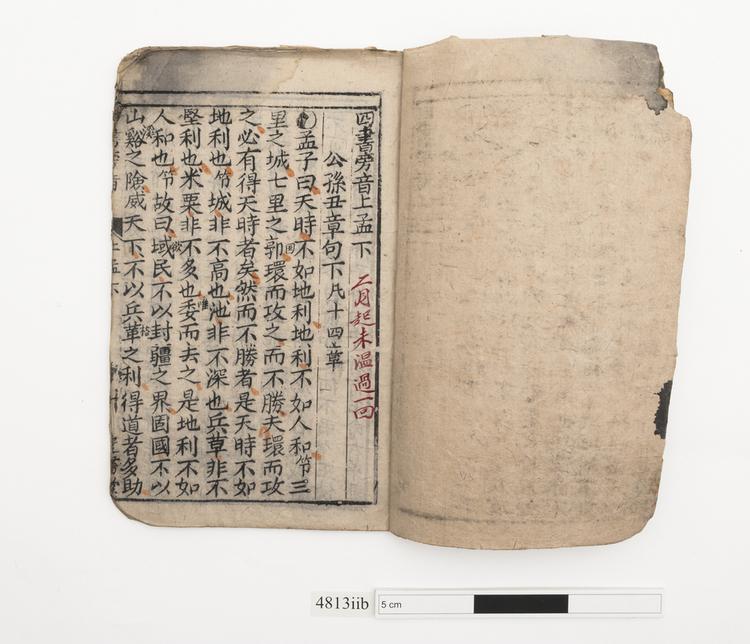 四書旁音上孟下
二月起未温過一回
公孫丑章句下凡十四章
孟子曰天時不如地利地利不如人和
三里之城七里之郭環而攻之而不勝夫環而攻
之必有得天時者矣然而不勝者是天時不如
地利也城非不高也池非不深也兵革非不
堅利也米粟非不多也委而去之是地利不如
人和也故曰域民不以封疆之界固國不以
山谿之險威天下不以兵革之利得道者多助
4813iib
5 cm